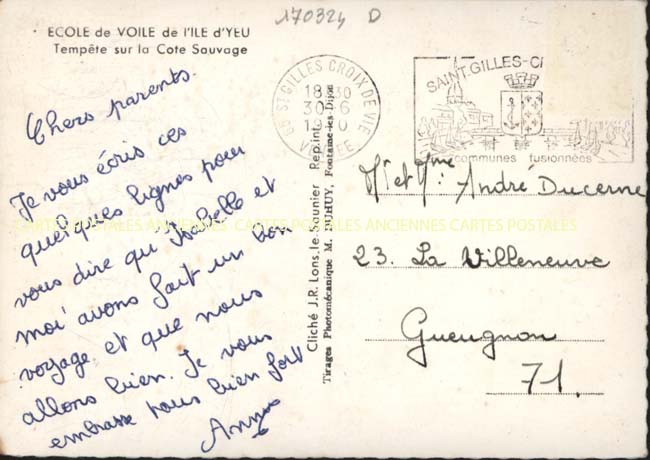 170324 D
ECOLE de VOILE de l'ILE d'YEU
Tempête sur la Cote Sauvage
Chers parents.
Je vous écris ces
quelques lignes pour
vous dire qu'Isabelle et
moi avons fait un bon
voyage et que nous
allons bien. Je vous
embrasse tous bien fort
ST GILLES CROIX DE VIE
18 30
30-6
VENDEE
SAINT GILLES-CR
communes fusionnées
Cliché J.R. Lons-le-Saunier Rep.int.
Tirages Photomécanique M. DUHUY, Fontaine-les-Dijon
Mr et Mme André Ducerne
23. La Villeneuve
Gueugnon
71.
CARTES POSTALES ANCIENNES CARTES POSTALES ANCIENNES CARTES POSTALES